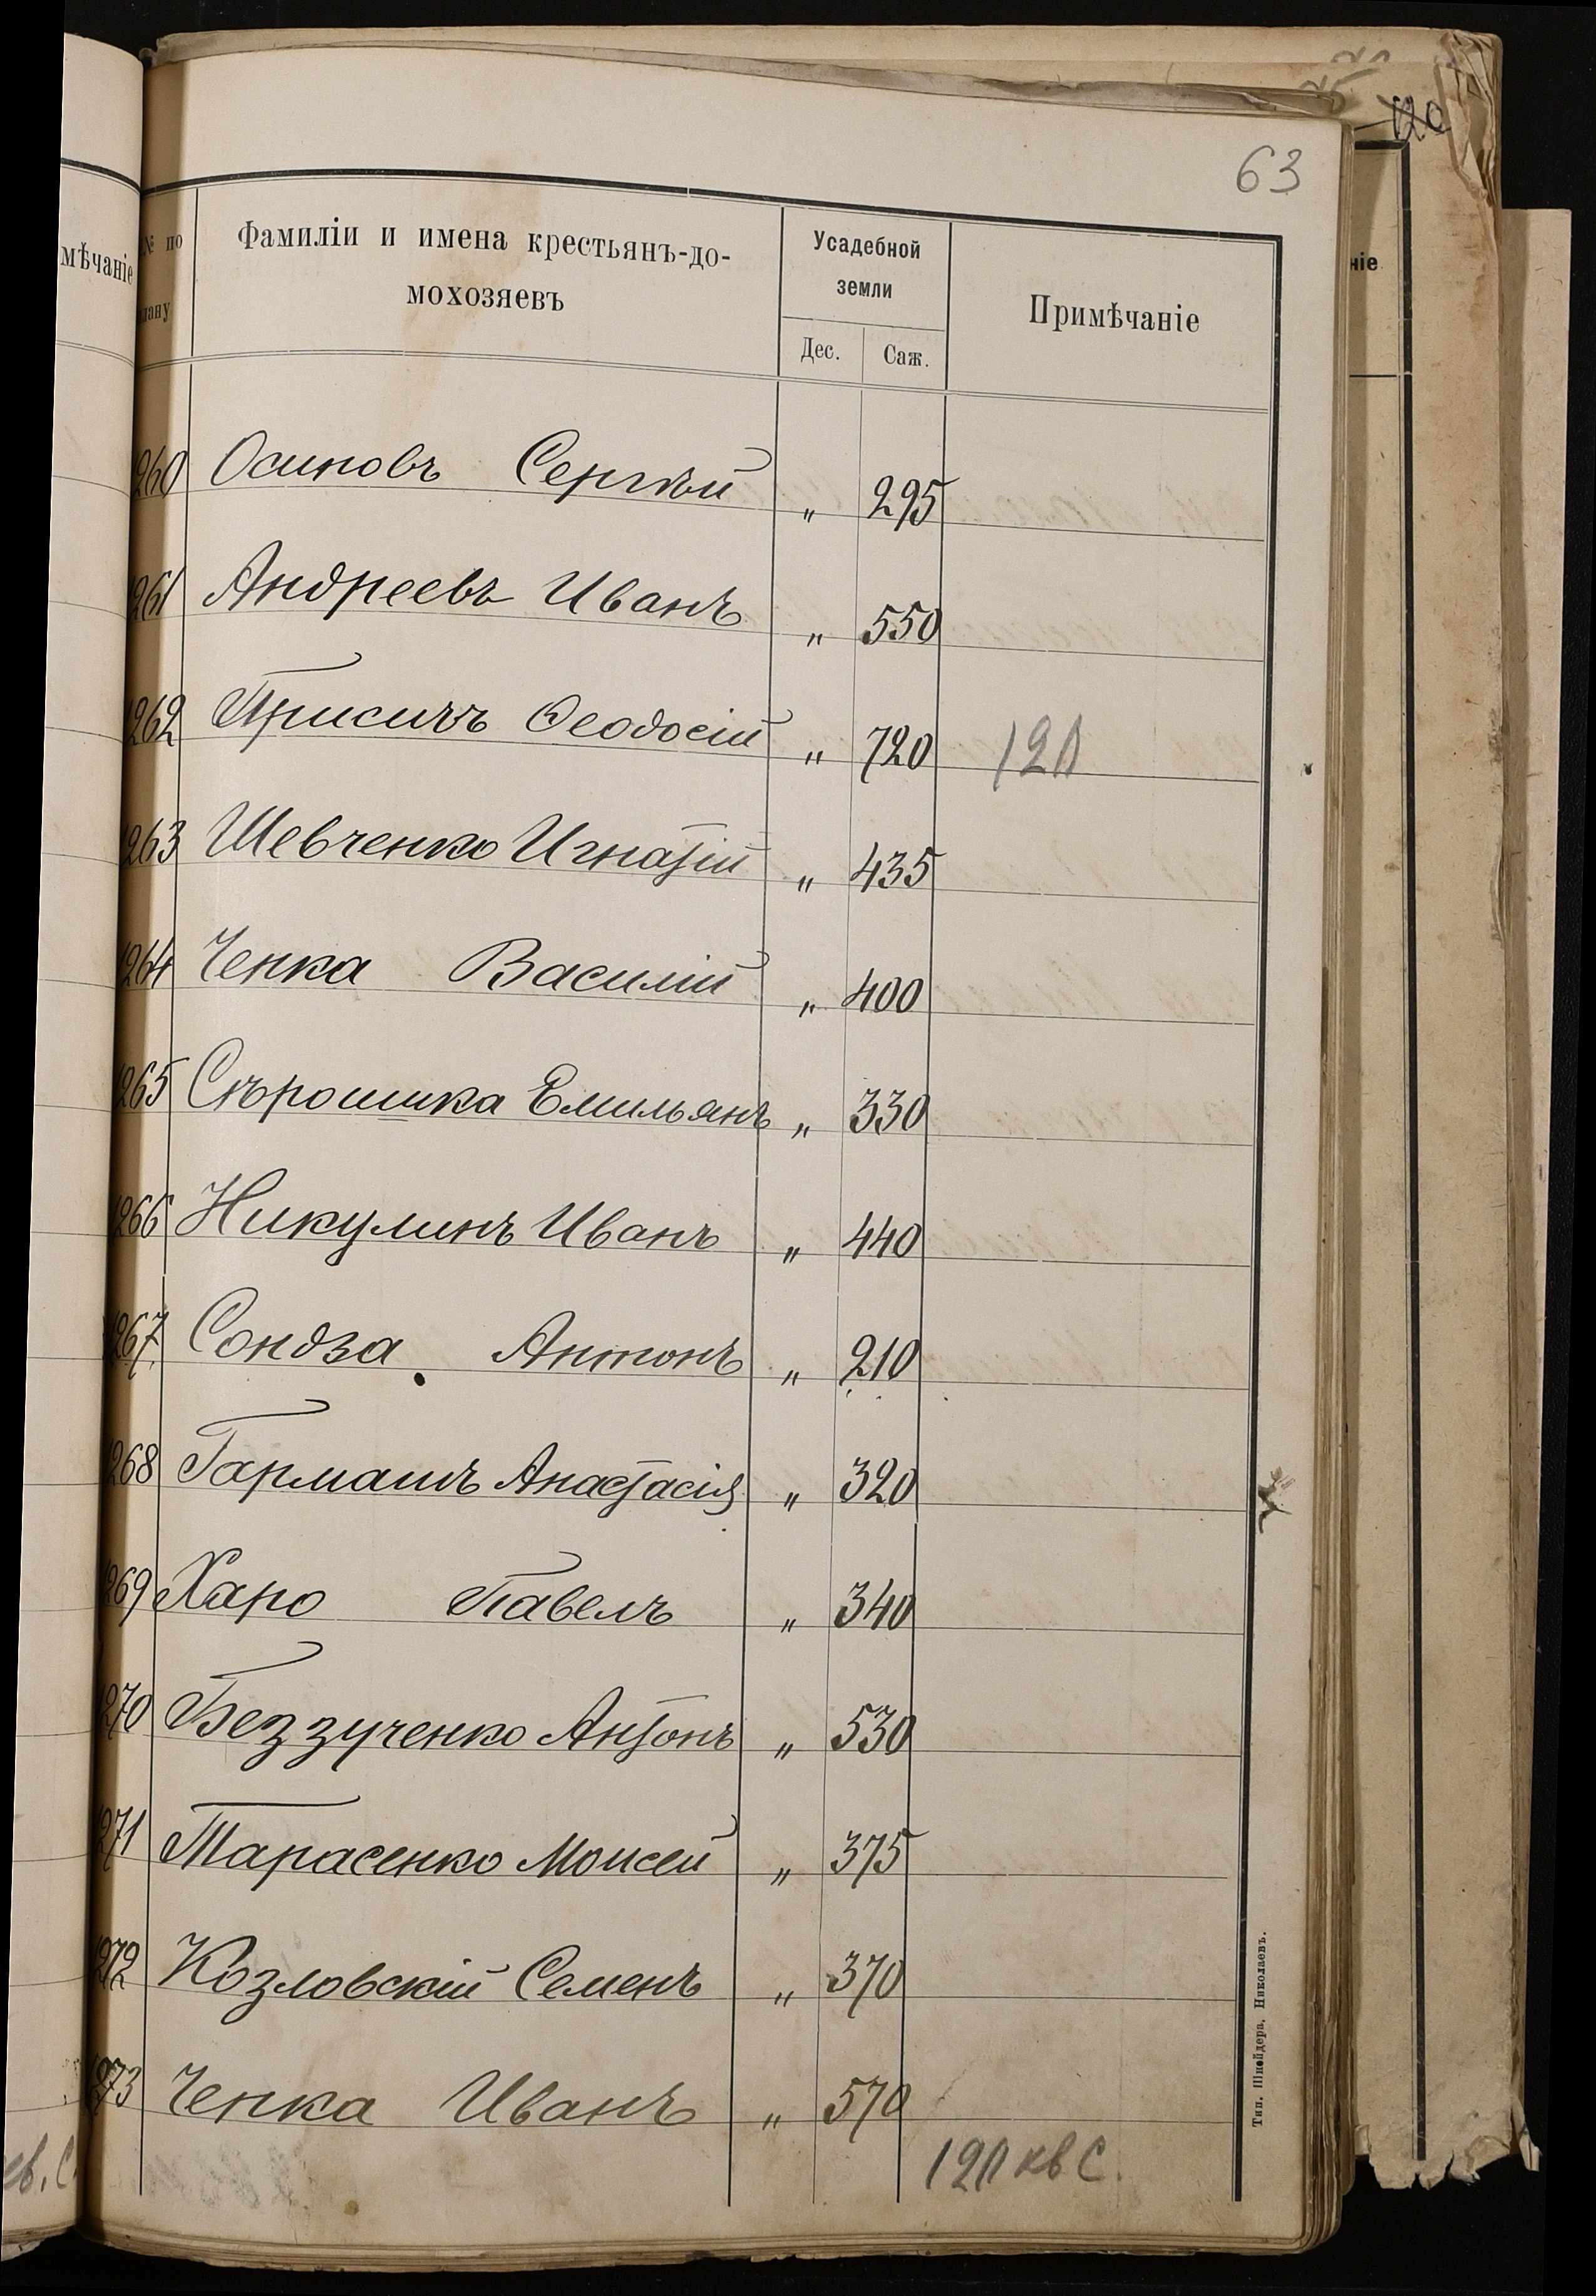 120
63
мѣчаніе
№ по
плану
Фамиліи и имена крестьянъ-до-
мохозяевъ
Усадебной
земли
Дес.
Саж.
Примѣчаніе
ніе
260 Осиповъ Сергѣй " 295
261 Андреевъ Иванъ " 550
262 Присичъ Ѳеодосій " 720 120
263 Шевченко Игнатій " 435
264 Ченка Василій " 400
265 Сѣрошика Емильянъ " 330
266 Никулинъ Иванъ " 440
267 Сондза Антонъ " 210
268 Гармашъ Анастасія " 320
269 Харо Павелъ " 340
270 Беззученко Антонъ " 530
271 Тарасенко Моисей " 375
272 Козловскій Семенъ " 370
273 Ченка Иванъ " 570
120 кв С.
Тип. Шнейдера, Николаевъ.